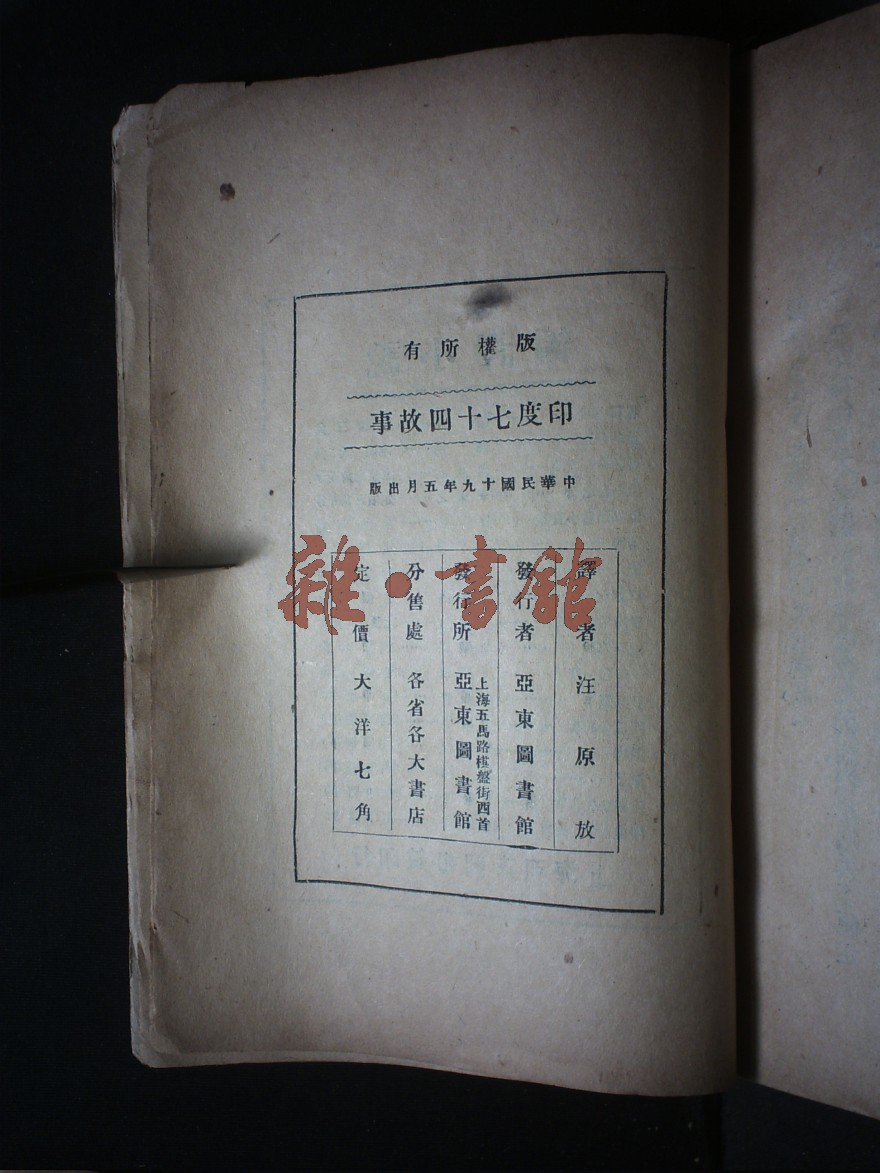 版權所有
印度七十四故事
中華民國十九年五月出版
譯者 汪原放
發行者 亞東圖書館
上海五馬路棋盤街西首
發行所 亞東圖書館
分售處 各省各大書店
定價 大洋七角
雜·書館